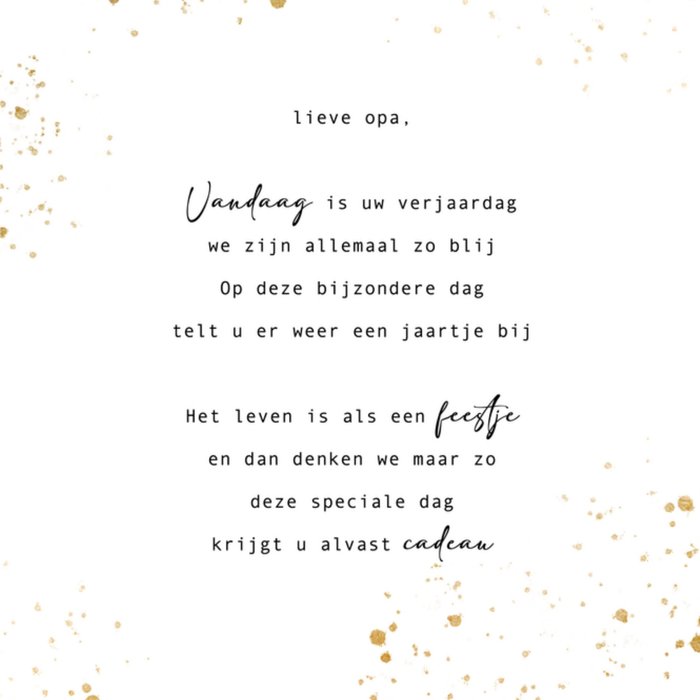 lieve opa,
Vandaag is uw verjaardag
we zijn allemaal zo blij
Op deze bijzondere dag
telt u er weer een jaartje bij
Het leven is als een feestje
en dan denken we maar zo
deze speciale dag
krijgt u alvast cadeau